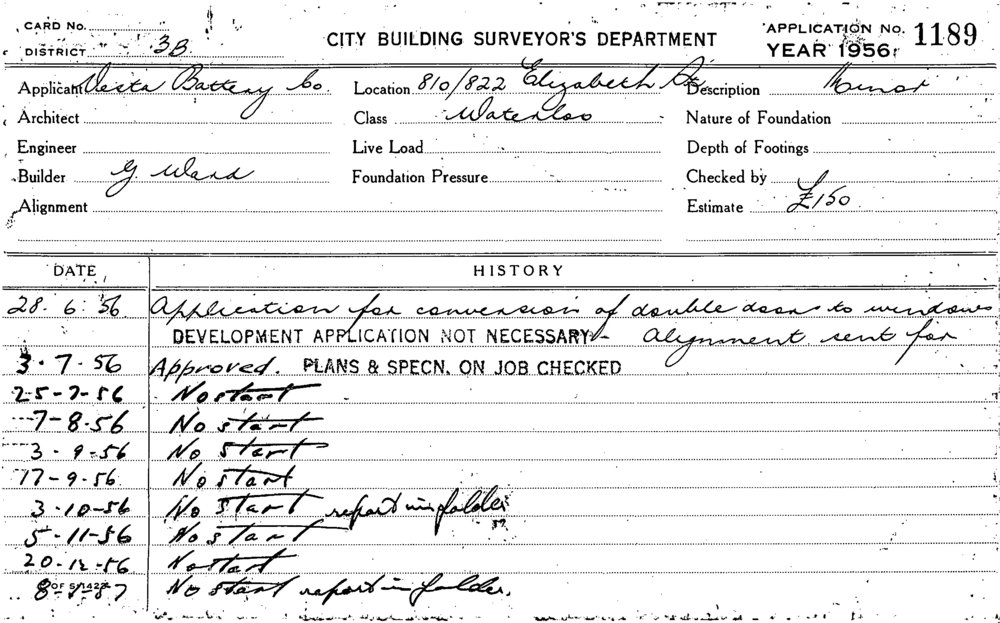 CARD No.
DISTRICT 3B
CITY BUILDING SURVEYOR'S DEPARTMENT
APPLICATION No. 1189
YEAR 1956
Applicant Vesta Battery Co. Location 810/822 Elizabeth St Description Minor
Architect Class Waterloo Nature of Foundation
Engineer Live Load Depth of Footings
Builder G Ward Foundation Pressure Checked by
Alignment Estimate £150
DATE HISTORY
28.6.56 Application for conversion of double doors to windows
DEVELOPMENT APPLICATION NOT NECESSARY - Alignment sent for
3.7.56 Approved. PLANS & SPECN. ON JOB CHECKED
25-7-56 No start
7-8-56 No start
3-9-56 No start
17-9-56 No start
3-10-56 No start report in folder
5-11-56 No start
20-12-56 No start
8-1-57 No start report in folder.